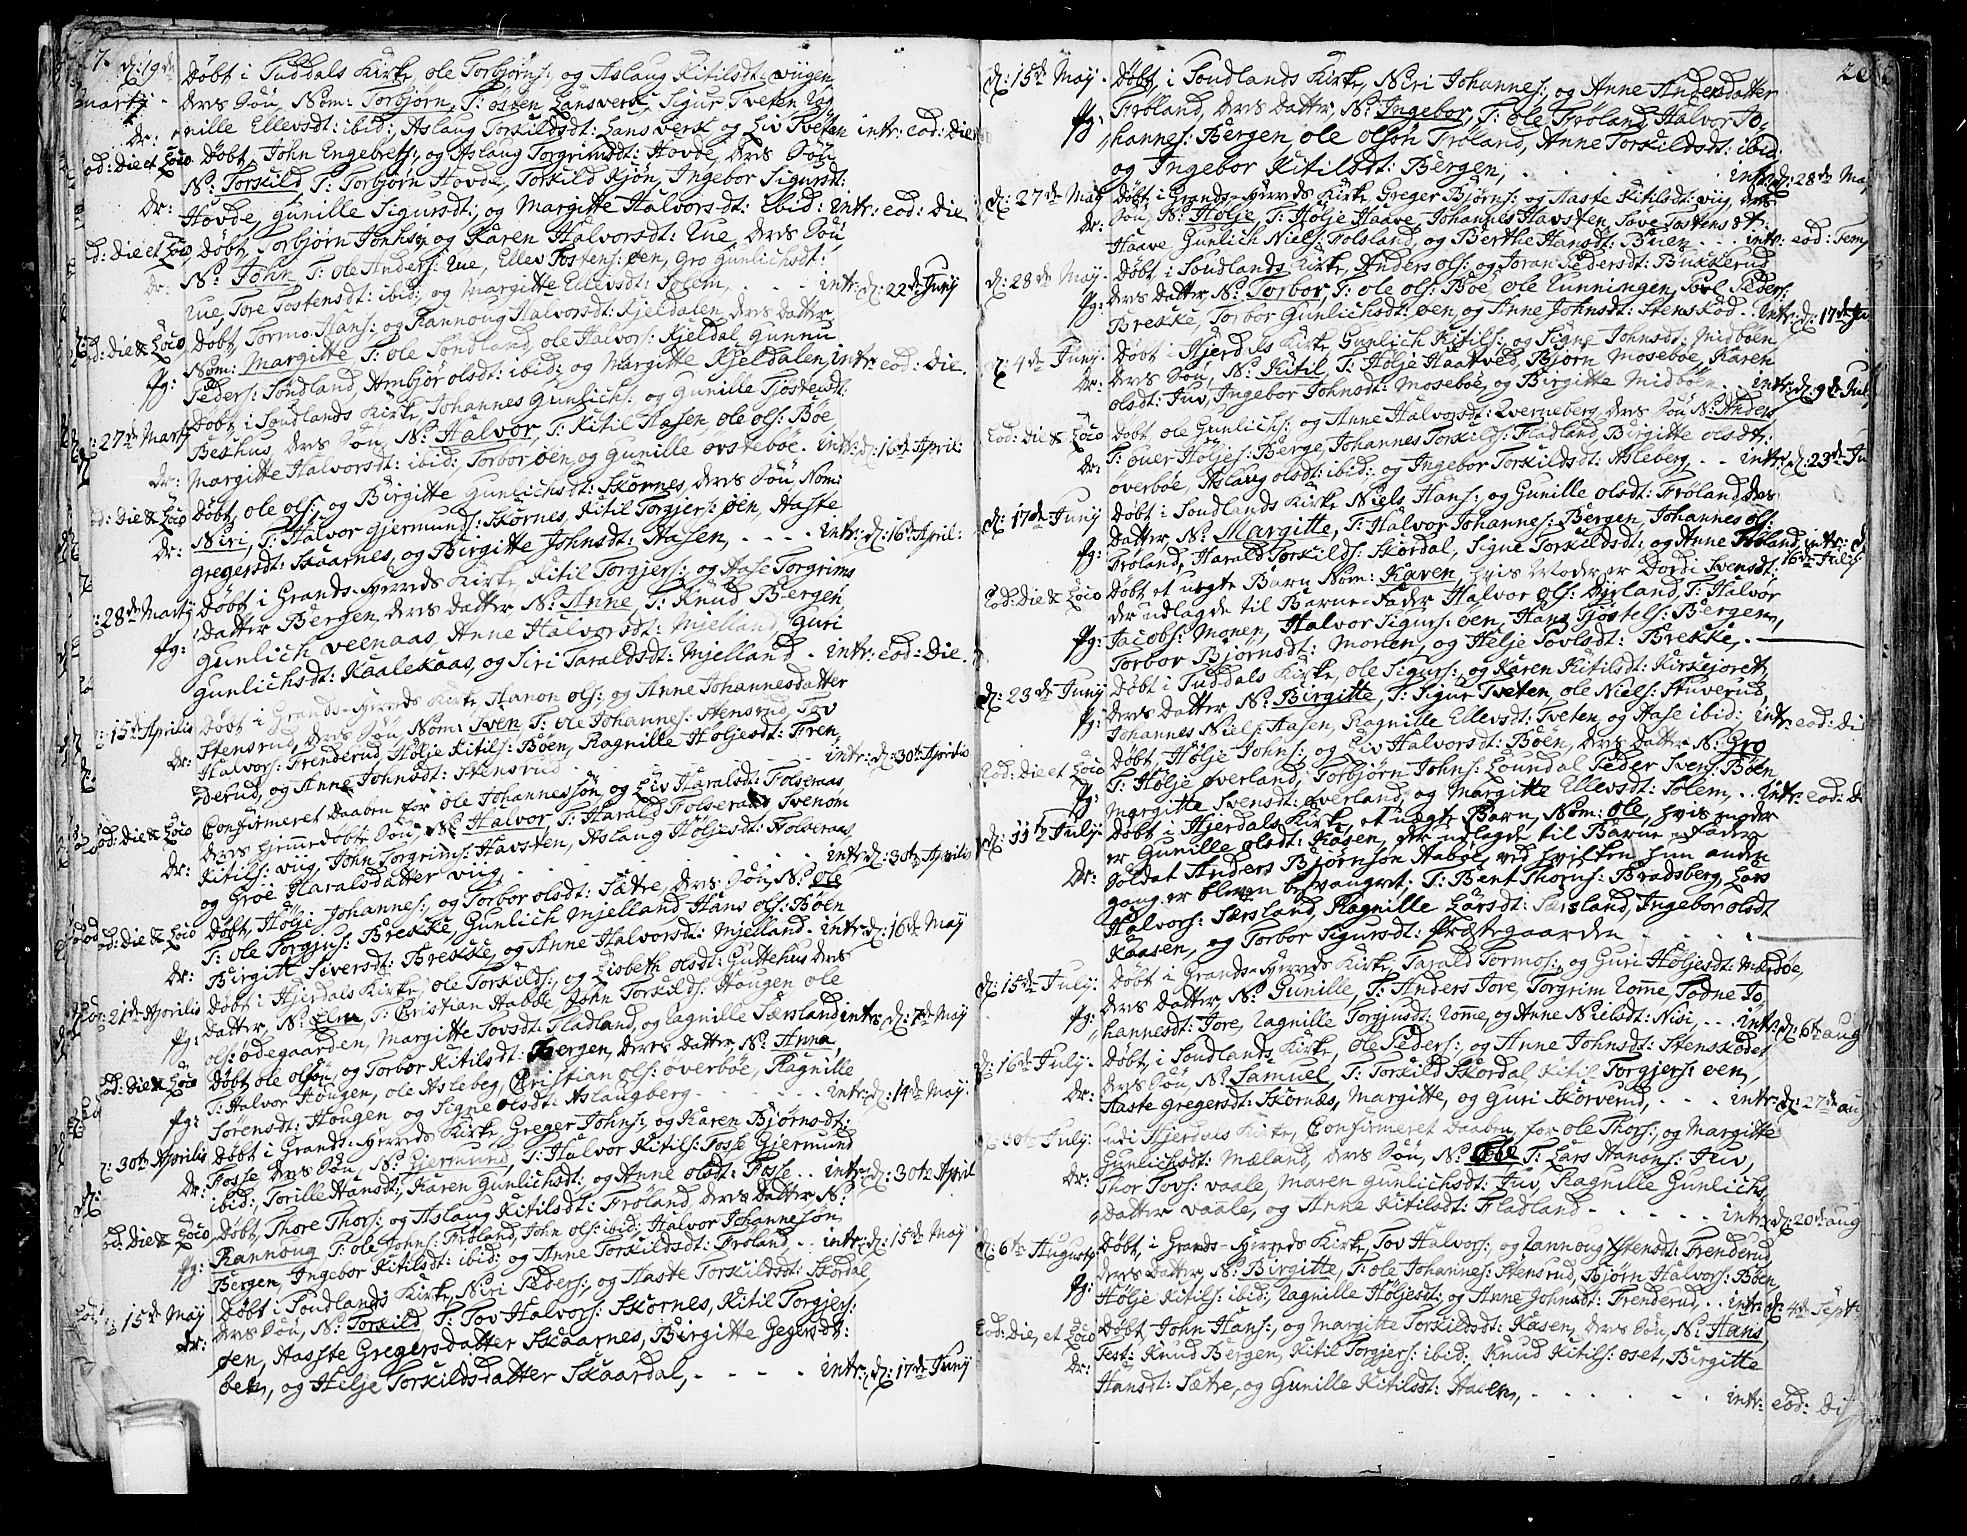 d: 19de Døbt i Tuddals Kirke, ole Torbjørns: og Aslaug Kitilsdt: viigen
Martij deres Søn, Nom: Torbjørn, T: østen Lansverk, Sigur Tveten Rag
dr: nille Ellevsdt: ibid: Aslaug Torkildsdt: Lansverk og Liv Tveten intr: eod: Die
eod: Die et Loco Døbt, John Engebretss: og Aslaug Torgrimsdt: Hovde, deres Søn
N: Torkild, T: Torbjørn Hovde, Torkild Kjøn, Ingebor Sigursdt:
dr: Hovde, Gunille Sigursdt: og Margitte Halvorsdt: ibid: intr: eod: Die
eod: Die et Loco Døbt, Torbjørn og Karen Halvorsdt: Rue, deres Søn
dr: N: John T: ole Anders: Rue, Ellev Tostens: øen, Gro Gunlichsdt:
Rue, Tore Tostensdt: ibid: og Margitte Ellevsdt: Solem, intr: d: 22de Junij
eod: Die & Loco Døbt, Tormo Hans: og Rannoug Halvorsdt: Kjeldalen, deres Datter
Nom: Margitte T: ole Søndland, ole Halvors: Kjeldal, Gunnu
pg: Peders: Søndland, Armbjør olsdt: ibid: og Margitte Kjeldalen, intr: eod: Die
d: 27de Martij Døbt i Soudlands Kirke, Johannes Gunlichs: og Gunille Tjostensdt:
Beshus, deres Søn, N: Halvor, T: Kitil Aasen, ole ols: Bøe
dr: Margitte Halvorsdt: ibid: Torbor øen, og Gunille ørstebøe. intr: d: 16de April:
eod: Die & Loco Døbt, ole ols: og Birgitte Gunlichsdt: Skornes, deres Søn, Nom:
dr: Niri, T: Halvor Gjermunds: Skornes, Kitil Torgjers: øen, Haste
Gregersdt: Skaarnes, og Birgitte Johnsdt: Aasen, intr: d: 16de April:
d: 28de Martij Døbt i Grands-Herreds Kirke, Kitil Torgjers: og Aase Torgrims
Datter Bergen, deres Datter, N: Anne, T: Knud Bergen,
pg: Gunlich veenaas, Anne Halvorsdt: Mjelland, Guri
Gunlichsdt: Kaalekaas, og Siri Taraldsdt: Mjelland. intr: eod: Die.
d: 15de Aprilis Døbt i Grands-Herreds Kirke Hanon ols: og Anne Johannesdatter
Stensrud, deres Søn, Nom: Sven T: ole Johannes: Stensrud, Tov
dr: Halvors: Frenderud, Hølje Kitils: Bøen, Ragnille Høljesdt: Fren,
derud, og Anne Johnsdt: Stensrud intr: d: 30te Aprilis
eod: Die & Loco Confirmeret Daaben for ole Johannessøn, og Liv Haralsdt: Folseraas
deres hjemmedøbte Søn, N: Halvor T: Harald Folseraas Svenøm
dr: Kitils: viig, John Torgrims: Havsten, Aslaug Høljesdt: Folseraas
og Groe Haralsdatter viig. intr: d: 30te Aprilis
eod: Die & Loco Døbt, Hølje Johannes: og Torbor olsdt: Sætre, deres Søn, N: ole
T: ole Torgjus: Brekke, Gunlich Mjelland, Hans ols: Bøen
dr: Birgitt Siversdt: Brekke, og Anne Halvorsdt: Mjelland. intr: d: 16de Maij
d: 21de Aprilis Døbt i Hjerdals Kirke, ole Torkilds: og Lisbeth olsdt: Guttehus deres
Datter, N: Elin T: Cristian Habbøe, John Torkilds: Hougen ole
pg: ols: ødegaarden, Margitte Tovsdt: Fladland, og Ragnille Særsland intr: d: 7de Maij
eod: Die & Loco Døbt ole olsøn, og Torbor Kitilsdt: Bergen, deres Datter, N: Anna
T: Halvor Hougen, ole Aslebeg, Christian ols: overbøe, Ragnille
pg: Sørensdt: Hougen og Signe olsdt: Aslaugberg intr: d: 14de Maij.
d: 30te Aprilis Døbt i Grands-Herreds Kirke, Greger Johns: og Karen Bjørnsdt:
dr: Fosse deres Søn, N: Gjermund, T: Halvor Kitils: Fosse Gjermund
ibid: Torille Hansdt: Karen Gunlichsdt: og Anne olsdt: Fosse. intr: d: 30te April
eod: Die & Loco Døbt, Thore Thors: og Aslaug Kitilsdt: Frøland, deres Datter N:
pg: Rannoug T: ole Johns: Frøland, John ols: ibid: Halvor Johannessøn
Bergen, Ingebor Kitilsdt: ibid: og Anne Torkildsdt: Frøland, intr: d: 15de Maij
d: 15de Maij Døbt i Soudlands Kirke, Niri Peders: og Aaste Torkildsdt: Skordal,
dr: deres Søn, N: Torkild T: Tov Halvors: Skornes, Kitil Torgjers:
øen, Aaste Gregersdatter Skaarnes, Birgitte Gegersdt:
øen, og Helje Torkildsdatter Skaardal, intr: d: 17de Junij
d: 15de Maij. Døbt, i Soudlands Kirke, Niri Johannes: og Anne Andersdatter
pg: Frøland, deres Datter, N: Ingebor, T: ole Frøland, Halvor Jo,
hannes: Bergen ole olsøn Frøland, Anne Torkildsdt: ibid:
og Ingebor Kitilsdt: Bergen, intr: d: 28de Ma
d: 27de Maij Døbt i Grands-Herreds Kirke, Greger Bjørns: og Aaste Kitilsdt: viig, deres
dr: Søn, N: Hølje, T: Hølje Haave, Johannes Havsten, Tove Tostensdt:
Haave Gunlich Niels: Folsland, og Berthe Hansdt: Büen intr: eod: Temp
d: 28de Maij. Døbt i Soudlands Kirke, Anders ols: og Joran Pedersdt: Bukkerud
pg: deres Datter, N: Torbor, T: ole ols: Bøe ole Lunningen, Povl Peders:
Brekke, Torbor Gunlichsdt: øen, og Anne Johnsdt: Stenskod. Intr: d: 17de Ju
d: 4de Junij. Døbt i Hjerdals Kirke Gunlich Kitils: og Signe Johnsdt: Midbøen
dr: deres Søn, N: Kitil, T: Hølje Haatved, Bjørn Mosebøe, Karen
olsdt: Juv, Ingebor Johnsdt: Mosebøe, og Birgitte Midbøen intr: d: 9de Jul
Eod: Die & Loco Døbt, ole Gunlichs: og Anne Halvorsdt: Qverneberg, deres Søn N: Anders
dr: T: øuer Høljes: Berge, Johannes Torkilds: Fladland, Birgitte olsdt:
overbøe, Aslaug olsdt: ibid: og Ingebor Torkildsdt: Asleberg, intr: d: 23de Ju
d: 17de Junij Døbt i Soudlands Kirke Niels Hans: og Gunille olsdt: Frøland deres
pg: Datter, N: Margitte, T: Halvor Johannes: Bergen, Johannes ols:
Frøland, Harald Torkilds: Skordal, Signe Torkildsdt: og Anne Frøland, intr: d
16de Julij
Eod: Die & Loco Døbt et uægte Barn Nom: Karen, hvis Moder er Dordi Svensdt:
der udlagde til Barne-Fader Halvor ols: Dyrland, T: Halvor
pg: Jacobs: Monen, Halvor Sigurs: øen, Hans Tjostels: Bergen,
Torbor Bjørnsdt: Monen, og Helje Povlsdt: Brekke,
d: 23de Junij Døbt i Tuddals Kirke, ole Sigurs: og Karen Kitilsdt: Kirkejoret,
pg: deres Datter, N: Birgitte, T: Sigur Tveten, ole Niels: Stuverud,
Johannes Niels: Aasen, Ragnille Ellevsdt: Tveten, og Aase ibid: intr: eod: Di
Eod: Die et Loco Døbt, Hølje Johns: og Liv Halvorsdt: Bøen, deres Datter N: Gro
pg: T: Hølje øverland, Torbjørn Johns: Loundal Peder Svens: Bøen
Margitte Svensdt: øverland, og Margitte Ellevsdt: Solem, intr: eod: D
d: 11te Julij. Døbt i Hjerdals Kirke, et uægte Barn, Nom: ole, hvis Moder
er Gunille olsdt: Kasen, der udlagde til Barne-Fader
dr: Soldat Anders Bjørnsøn Habøe, ved hvilken hun anden
gang er bleven besvangret; T: Bent Thorns: Bradsberg, Lars
Halvors: Særsland, Ragnille Larsdt: Særsland, Ingebor olsdt
Kaasen, og Torbor Sigursdt: Præstegaarden
d: 15de Julij: Døbt i Grands-Herreds Kirke, Tarald Tormos: og Guri Høljesdt: Mærdøe,
pg: deres Datter, N: Gunille, T: Anders Jore, Torgrim Romme, Todne Jo,
hannesdt: Jore, Ragnille Torgjusdt: Romme, og Anne Nielsdt: Nisi, intr: d: 6te aug
d: 16de Julij. Døbt i Soudlands Kirke, ole Peders: og Anne Johnsdt: Stenskodet
dr: deres Søn, N: Samuel, T: Torkild Skordal, Kitil Torgjers: øen,
Aaste Gregersdt: Skornæs, Margitte, og Guri Skorverud, intr: d: 27de au
30te Julij udi Hjerdals Kirke, Confirmeret Daaben, for ole Thors: og Margitte
dr: Gunlichsdt: Mæland, deres Søn, N: T: Lars Hanons: Juv,
Thor Tovs: vaale, Maren Gunlichsdt: Juv, Ragnille Gunlichs,
datter vaale, og Anne Kitilsdt: Fladland intr: d: 20de aug
d: 6te Augusti. Døbt, i Grands-Herreds Kirke, Tov Halvors: og Rannoug Ystensdt: Frenderud,
pg: deres Datter, N: Birgitte, T: ole Johannes: Stensrud, Bjørn Halvors: Bøen,
Hølje Kitils: ibid: Ragnille Høljesdt: og Anne Johnsdt: Frenderud, intr: d: 4de Sept
Eod: Die, et Loco Døbt, John Hans: og Margitte Torkildsdt: Kasen, deres Søn, N: Hans,
dr: Test: Knud Bergen, Kitil Torgjers: ibid: Knud Kitils: oset, Birgitte
Hansdt: Sætre, og Gunille Kitilsdt: Aasen, intr: eod: Di